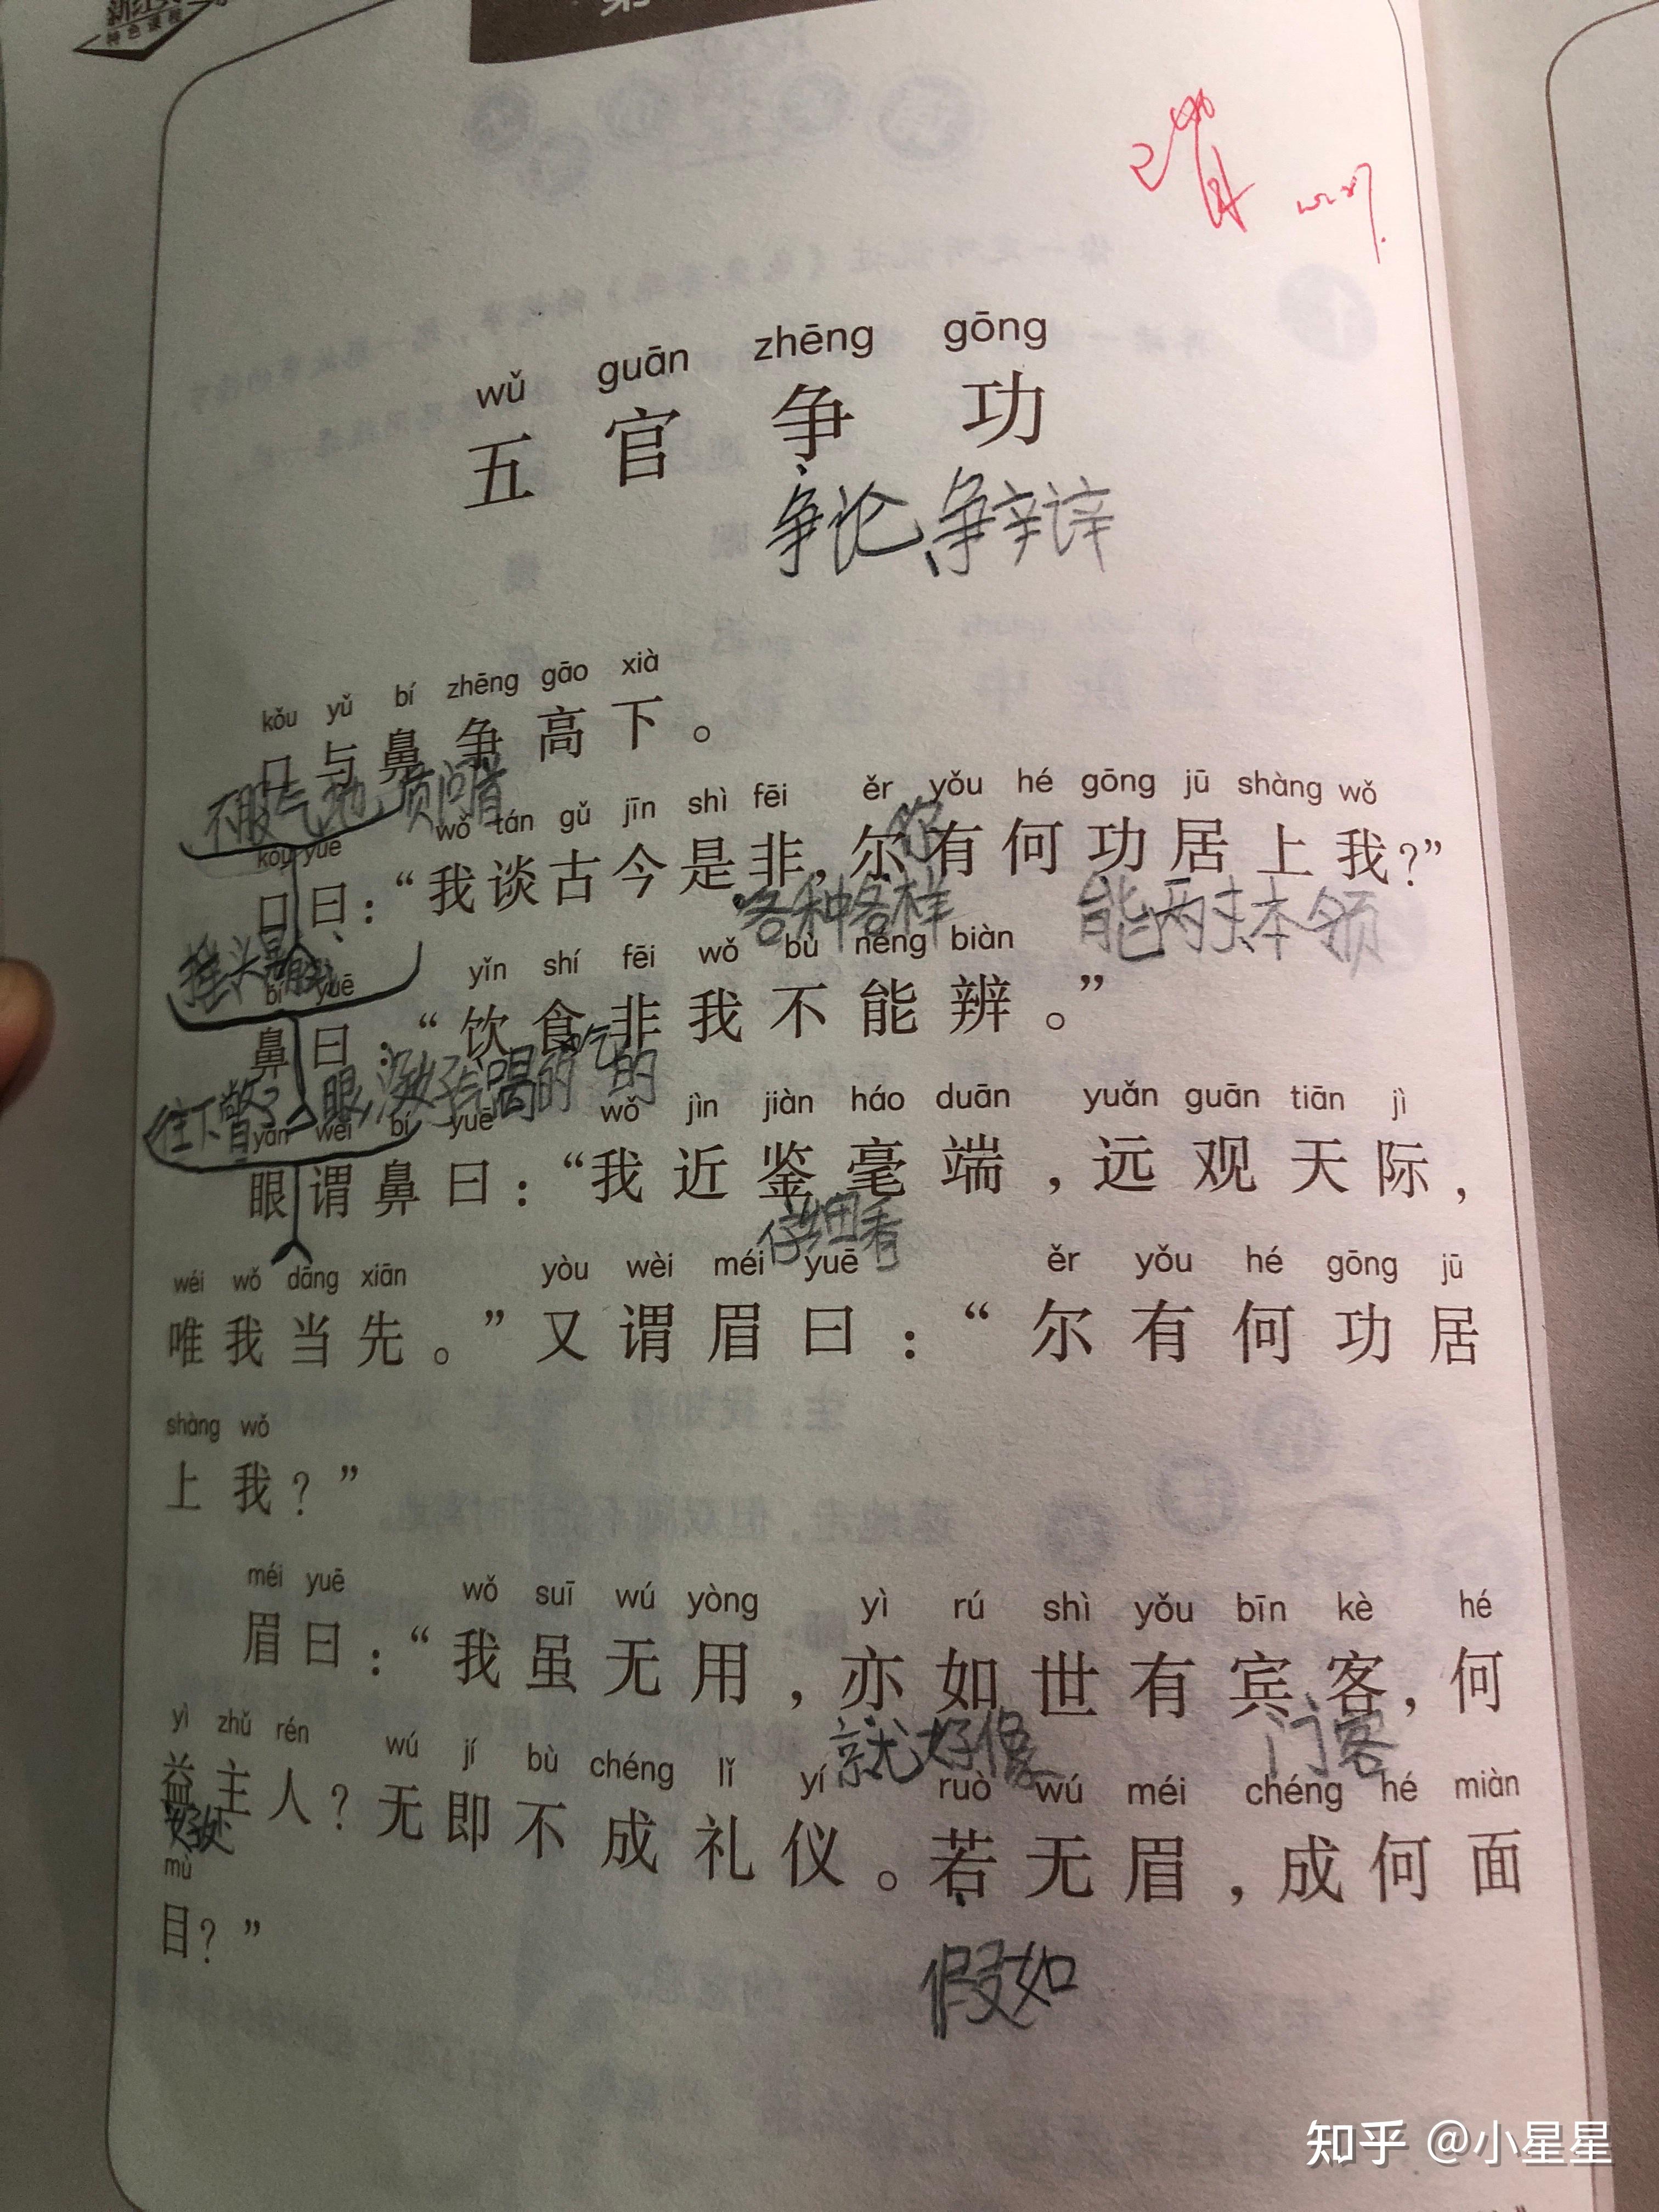 特色课程
第
wǔ guān zhēng gōng
五官争功
争论、争辩
kǒu yǔ bí zhēng gāo xià
口与鼻争高下。
不服气地质问着
kǒu yuē wǒ tán gǔ jīn shì fēi ěr yǒu hé gōng jū shàng wǒ
你
口曰：“我谈古今是非，尔有何功居上我？”
各种各样 能两才本领
摇头晃
bí yuē yǐn shí fēi wǒ bù néng biàn
鼻曰：“饮食非我不能辨。”
喝的 吃的
yǎn wèi bí yuē wǒ jìn jiàn háo duān yuǎn guān tiān jì
眼谓鼻曰：“我近鉴毫端，远观天际，
仔细看
wéi wǒ dāng xiān yòu wèi méi yuē ěr yǒu hé gōng jū
唯我当先。”又谓眉曰：“尔有何功居
shàng wǒ
上我？”
méi yuē wǒ suī wú yòng yì rú shì yǒu bīn kè hé
眉曰：“我虽无用，亦如世有宾客，何
就好像 门客
yì zhǔ rén wú jí bù chéng lǐ yí ruò wú méi chéng hé miàn
益主人？无即不成礼仪。若无眉，成何面
好处
mù
目？”
假如
知乎 @小星星